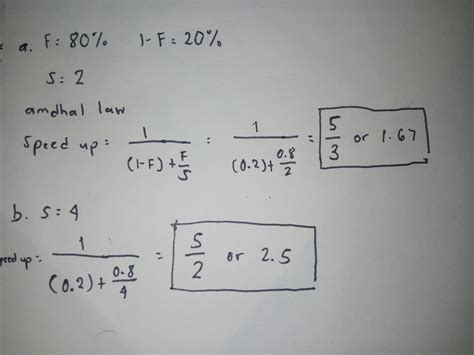 a. F = 80% 1-F = 20%
S = 2
amdhal law
Speed up = 1/((1-F)+F/S) = 1/((0.2)+0.8/2) = 5/3 or 1.67
b. S = 4
peed up = 1/((0.2)+0.8/4) = 5/2 or 2.5